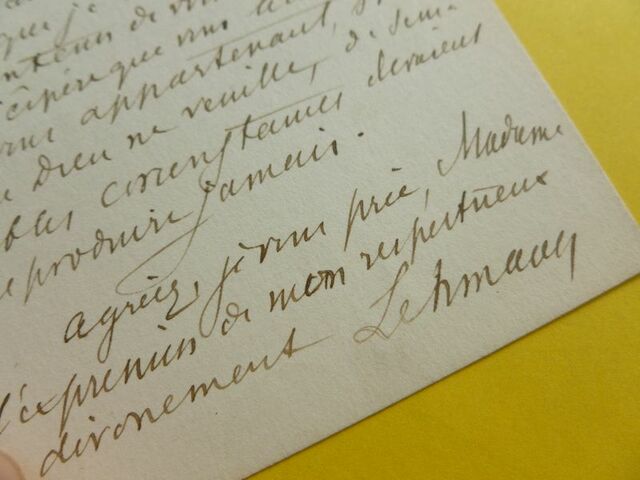 que je
contenu de vous
j'espère que vous
vous appartenant,
Dieu ne veuille, de sem
blables circonstances devaient
se produire jamais.
agréez, je vous prie, Madame
l'expression de mon respectueux
dévouement Lehmann